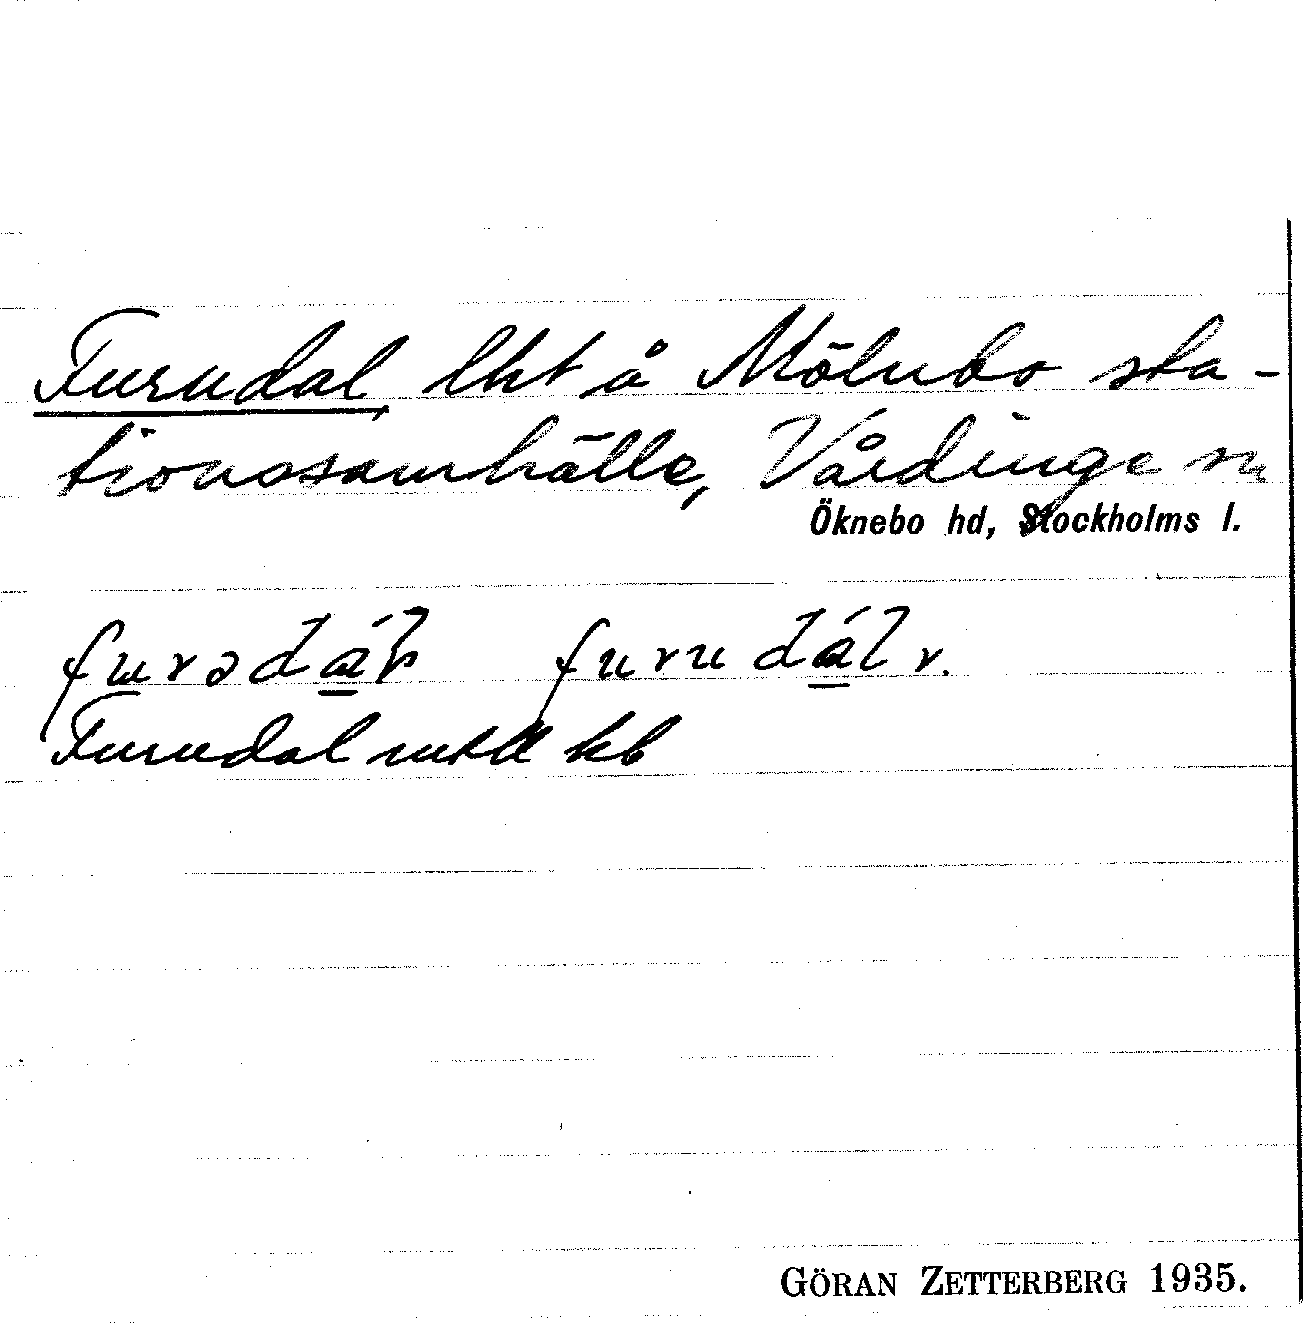 Furudal, lht å Mölnbo sta-
tionssamhälle, Vårdinge sn
Öknebo hd, Stockholms l.
furudál r.
Furudal mtll kb
GÖRAN ZETTERBERG 1935.